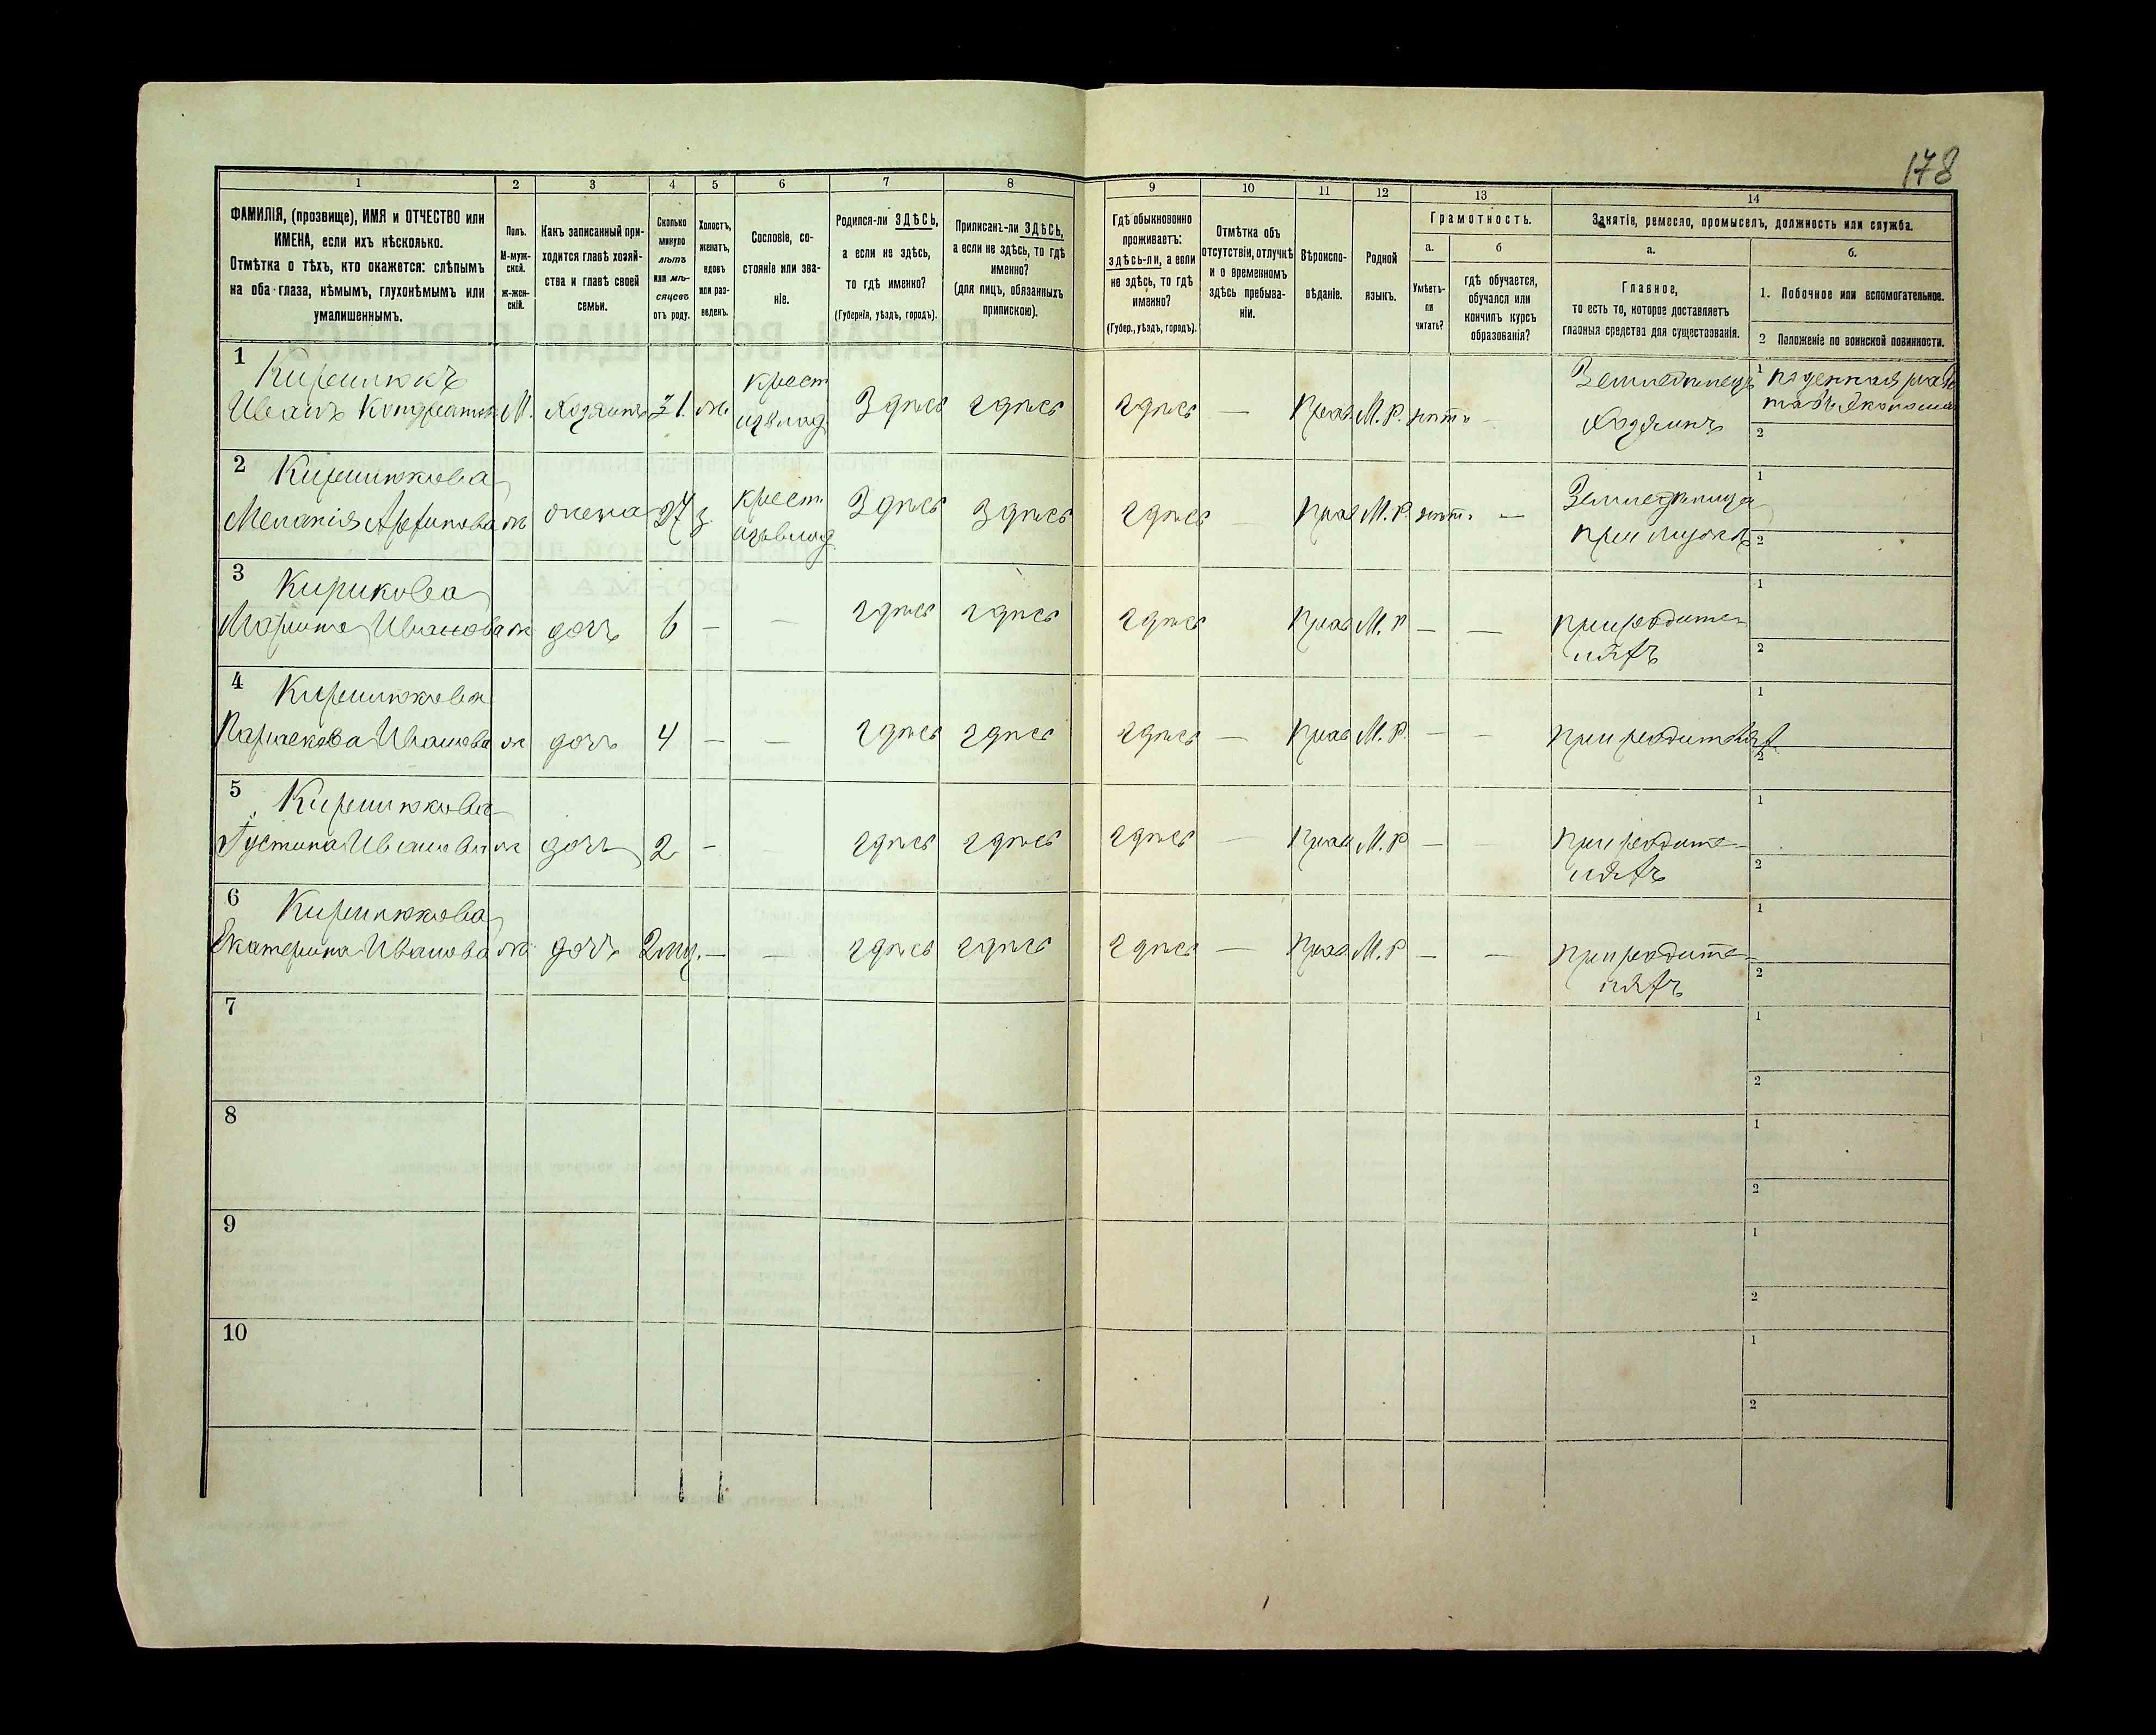 178
1 2 3 4 5 6 7 8 9 10 11 12 13 14
ФАМИЛІЯ, (прозвище), ИМЯ и ОТЧЕСТВО или
ИМЕНА, если ихъ нѣсколько.
Отмѣтка о тѣхъ, кто окажется: слѣпымъ
на оба глаза, нѣмымъ, глухонѣмымъ или
умалишеннымъ.
Полъ.
М-муж-
ской.
ж-жен-
скій.
Какъ записанный при-
ходится главѣ хозяй-
ства и главѣ своей
семьи.
Сколько
минуло
лѣтъ
или мѣ-
сяцевъ
отъ роду.
Холостъ,
женатъ,
вдовъ
или раз-
веденъ.
Сословіе, со-
стояніе или зва-
ніе.
Родился-ли ЗДѢСЬ,
а если не здѣсь,
то гдѣ именно?
(Губернія, уѣздъ, городъ).
Приписанъ-ли ЗДѢСЬ,
а если не здѣсь, то гдѣ
именно?
(для лицъ, обязанныхъ
припискою).
Гдѣ обыкновенно
проживаетъ:
здѣсь-ли, а если
не здѣсь, то гдѣ
именно?
(Губер., уѣздъ, городъ).
Отмѣтка объ
отсутствіи, отлучкѣ
и о временномъ
здѣсь пребыва-
ніи.
Вѣроиспо-
вѣданіе.
Родной
языкъ.
Грамотность.
а.
Умѣетъ-
ли
читать?
б
гдѣ обучается,
обучался или
кончилъ курсъ
образованія?
Занятія, ремесло, промыселъ, должность или служба.
а.
Главное,
то есть то, которое доставляетъ
главныя средства для существованія.
б.
1. Побочное или вспомогательное.
2 Положеніе по воинской повинности.
1
Иванъ М. Хозяинъ 31 ж.
крест
здѣсь здѣсь здѣсь — Прав М. Р. нѣтъ —
Земледѣлецъ
Хозяинъ
1 поденная
2
2 Кирилюкова
Меланія ж жена 27 з.
крест
здѣсь здѣсь здѣсь — Прав М. Р. нѣтъ —
Земледѣлица
при мужѣ
1
2
3 Кирикова
Марина Иванова ж дочь 6 — — здѣсь здѣсь здѣсь Прав М. Р — —
при родите-
ляхъ
1
2
4 Кирилюкова
Параскева Иванова ж дочь 4 — — здѣсь здѣсь здѣсь — Прав М. Р. — —
при родителях
1
2
5 Кирилюкова
Устина Иванова ж дочь 2 — здѣсь здѣсь здѣсь — Прав М. Р — —
при родите-
ляхъ
1
2
6 Кирилюкова
Екатерина Иванова ж дочь 2 мц. — — здѣсь здѣсь здѣсь — Прав М. Р — —
при родите-
ляхъ
1
2
7
1
2
8
1
2
9
1
2
10
1
2